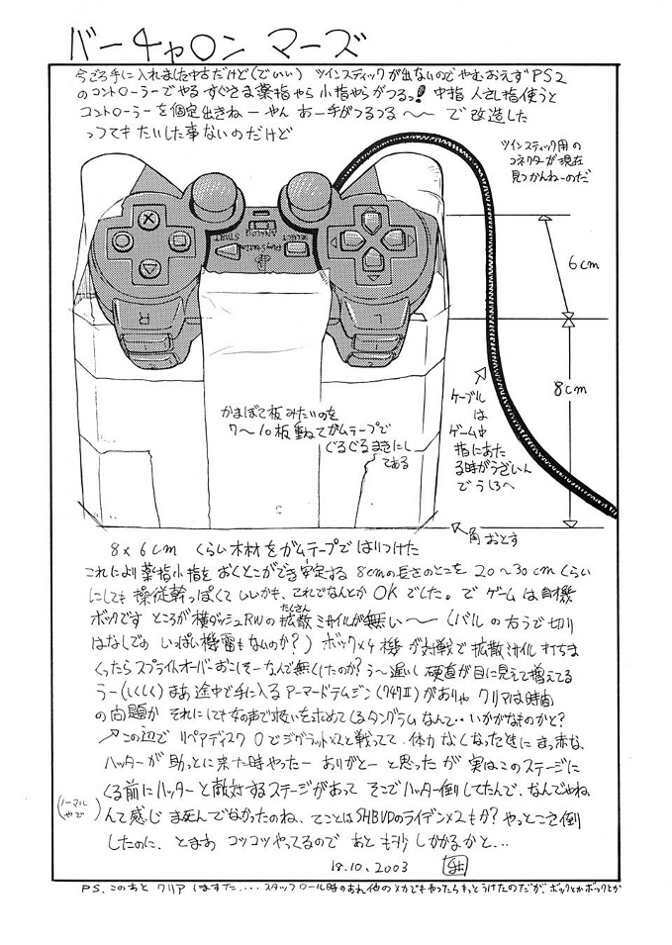 バーチャロン マーズ
今ごろ手に入れました中古だけど(でいい) ツインスティックが出ないのでやむおえずPS2
のコントローラーでやる すぐさま薬指やら小指やらがつるっ! 中指 人さし指使うと
コントローラーを固定出きねーやん おー手がつるつる〜〜 で改造した
ってもたいした事ないのだけど
ツインスティック用の
コネクターが現在
見つかんねーのだ
SELECT
ANALOG
START
PlayStation
R
L
1
2
1
2
6cm
8cm
ケーブル
は
ゲーム中
指にあた
る時がうざいん
でうしろへ
かまぼこ板みたいのを
7〜10板重ねてガムテープで
ぐるぐるまきにし
てある
角おとす
8×6cm くらい木材をガムテープではりつけた
これにより薬指小指をおくとこができ安定する 8cmの長さのとこを20〜30cmくらい
にしても操従幹っぽくていいかも、これでなんとかOKでした。で ゲームは自機
ボックです ところが横ダッシュRWの拡散ミサイルが無い〜 (バルの右うで切り
たくさん
はなしでの いっぱい機雷もなのか?) ボック×4機 が対戦で拡散ミサイル打ちま
くったらスプライトオーバーおこしそーなんで無くしたのか? う〜遅いし 硬直が目に見えて増えてる
うー(しくしく) まあ途中で手に入る アーマードテムジン(747Ⅱ)がありゃクリアは時間
の問題か それにしても女の声で扱いを求めてくるタングラムなんて‥いかがなものかと?
↗この辺で リペアディスク0でジグラット×2と戦ってて、体力なくなった時に まっ赤な、
ハッターが助っとに来た時やったー ありがとー と思ったが 実はこのステージに
くる前にハッターと敵対するステージがあって そこでハッター倒してたんで、なんでやねん
(ノーマルやで)
て感じ ま死んでなかったのね、てことはSHBVDのライデン×2もか? やっとこさ倒
したのに、とまあ コツコツやってるので あともう少ししかかるかと…
18.10.2003
P.S.このあと クリア はすた....スタッフロール時のおれ他のメカでもやったらもっとうけたのだが、ボックとかボックとか